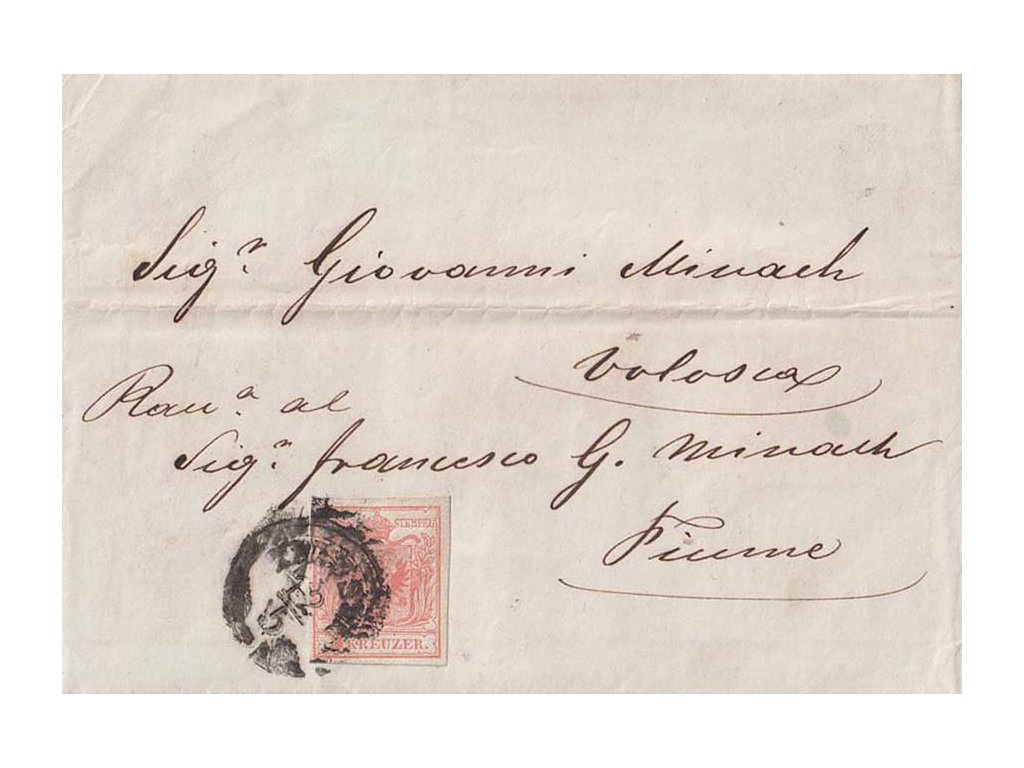 Sigr. Giovanni Minach
Volosca
Rana. al
Sigr. francesco G. Minach
Fiume
STEMPEL
KREUZER.